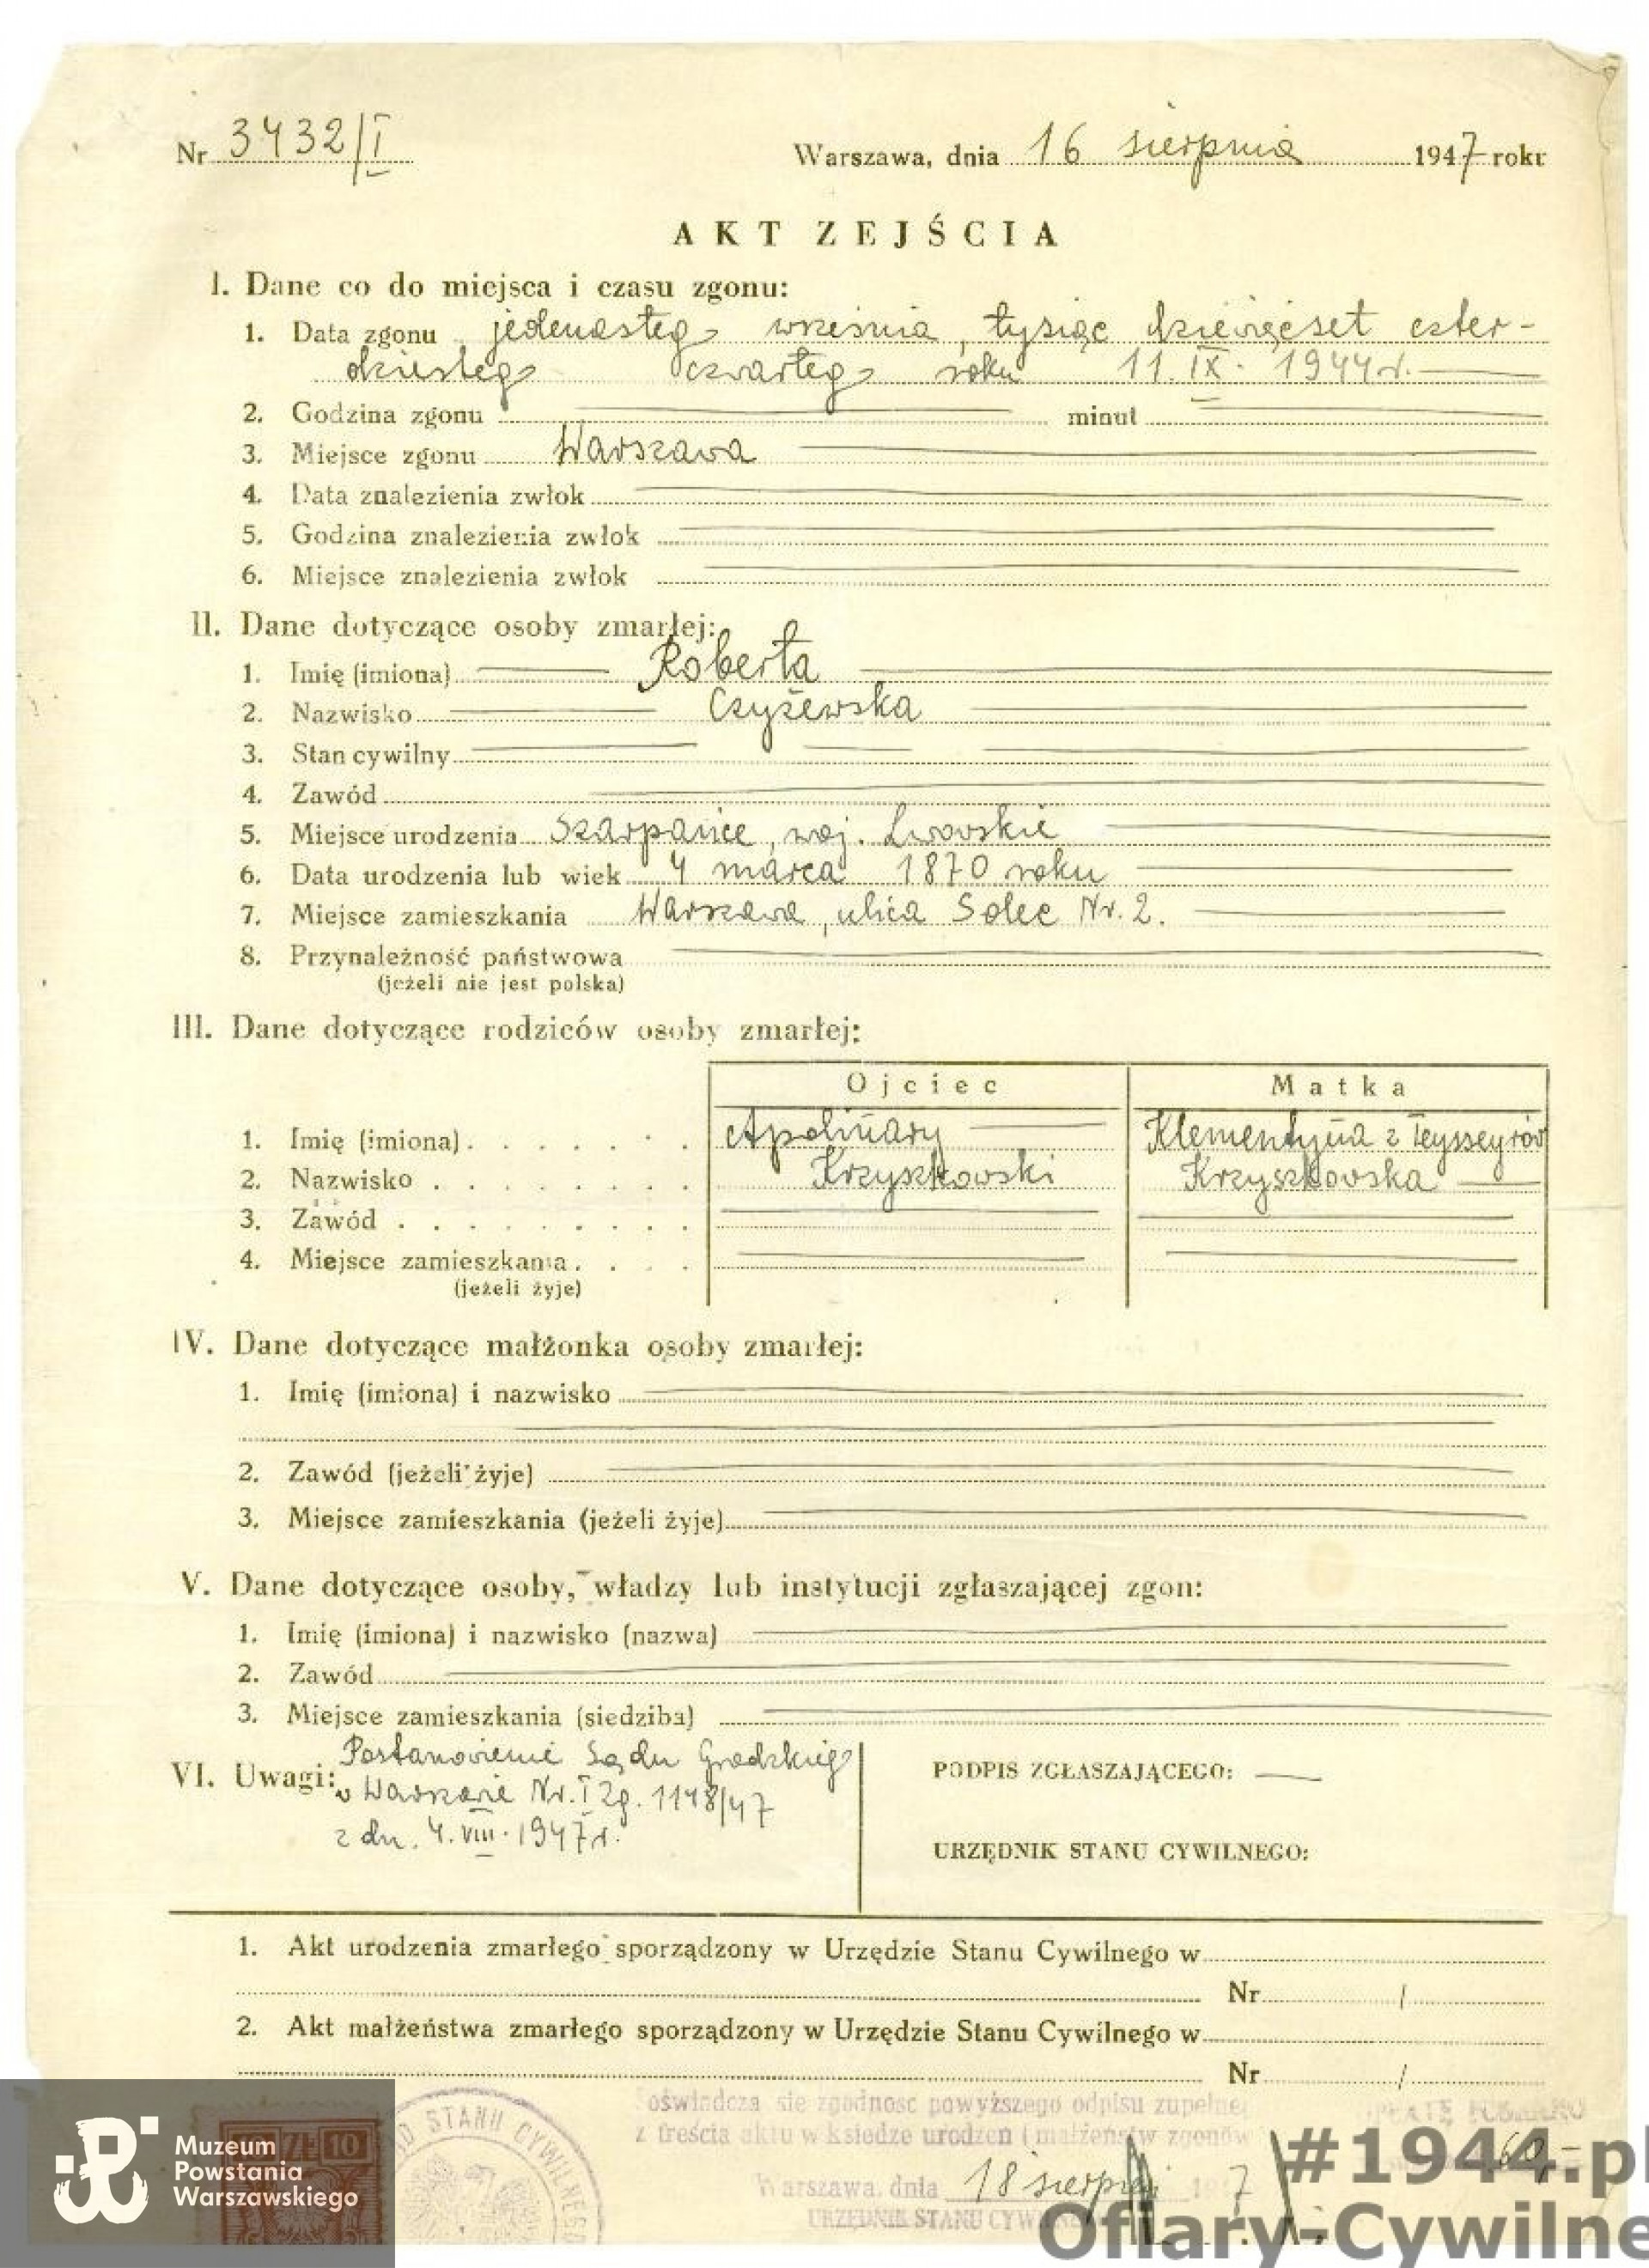 Nr 3432/I Warszawa, dnia 16 sierpnia 1947 roku
AKT ZEJŚCIA
I. Dane co do miejsca i czasu zgonu:
1. Data zgonu jedenastego września, tysiąc dziewięćset czter-
dziestego czwartego roku 11. IX. 1944 r.
2. Godzina zgonu minut
3. Miejsce zgonu Warszawa
4. Data znalezienia zwłok
5. Godzina znalezienia zwłok
6. Miejsce znalezienia zwłok
II. Dane dotyczące osoby zmarłej:
1. Imię (imiona) Roberta
2. Nazwisko Czyżewska
3. Stan cywilny
4. Zawód
5. Miejsce urodzenia Szarpańce, woj. Lwowskie
6. Data urodzenia lub wiek 4 marca 1870 roku
7. Miejsce zamieszkania Warszawa, ulica Solec Nr. 2.
8. Przynależność państwowa
(jeżeli nie jest polska)
III. Dane dotyczące rodziców osoby zmarłej:
Ojciec Matka
1. Imię (imiona) Apolinary Klementyna z Teysseyrów
2. Nazwisko Krzyszkowski Krzyszkowska
3. Zawód
4. Miejsce zamieszkania
(jeżeli żyje)
IV. Dane dotyczące małżonka osoby zmarłej:
1. Imię (imiona) i nazwisko
2. Zawód (jeżeli żyje)
3. Miejsce zamieszkania (jeżeli żyje)
V. Dane dotyczące osoby, władzy lub instytucji zgłaszającej zgon:
1. Imię (imiona) i nazwisko (nazwa)
2. Zawód
3. Miejsce zamieszkania (siedziba)
VI. Uwagi: Postanowienie Sądu Grodzkiego
w Warszawie Nr. I Zg. 1148/47
z dn. 4. VIII. 1947 r.
PODPIS ZGŁASZAJĄCEGO:
URZĘDNIK STANU CYWILNEGO:
1. Akt urodzenia zmarłego sporządzony w Urzędzie Stanu Cywilnego w
Nr /
2. Akt małżeństwa zmarłego sporządzony w Urzędzie Stanu Cywilnego w
Nr /
oświadcza sie zgodnosc powyższego odpisu zupełne
z treścia aktu w ksiedze urodzeń i małżeństw zgonów
Warszawa, dnia 18 sierpnia 7
URZĘDNIK STANU CYW
STANU CYWILNEGO
10 ZŁ 10
Muzeum
Powstania
Warszawskiego
#1944.pl
Ofiary-Cywilne